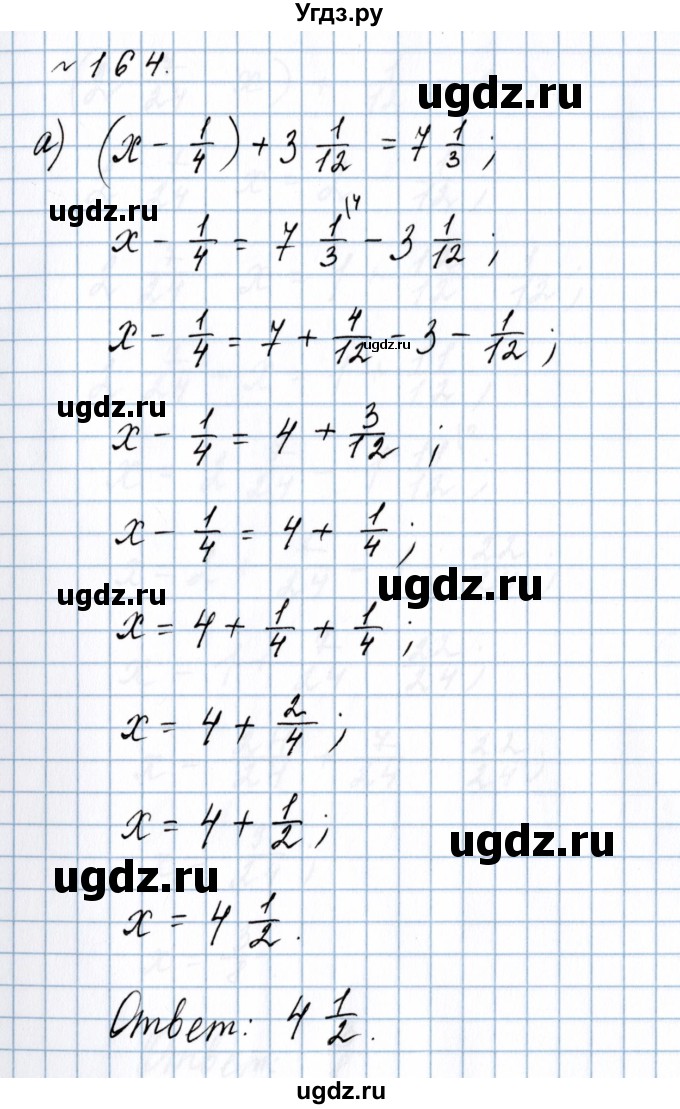 Угдз.ру
№ 164.
ugdz.ru
а) (x - 1/4) + 3 1/12 = 7 1/3 ;
ugdz.ru
x - 1/4 = 7 1/3 (4 - 3 1/12 ;
x - 1/4 = 7 + 4/12 - 3 - 1/12 ;
ugdz.ru
ugdz.ru
x - 1/4 = 4 + 3/12 ;
x - 1/4 = 4 + 1/4 ;
ugdz.ru
ugdz.ru
x = 4 + 1/4 + 1/4 ;
x = 4 + 2/4 ;
x = 4 + 1/2 ;
ugdz.ru
ugdz.ru
x = 4 1/2 .
Ответ: 4 1/2 .
ugdz.ru